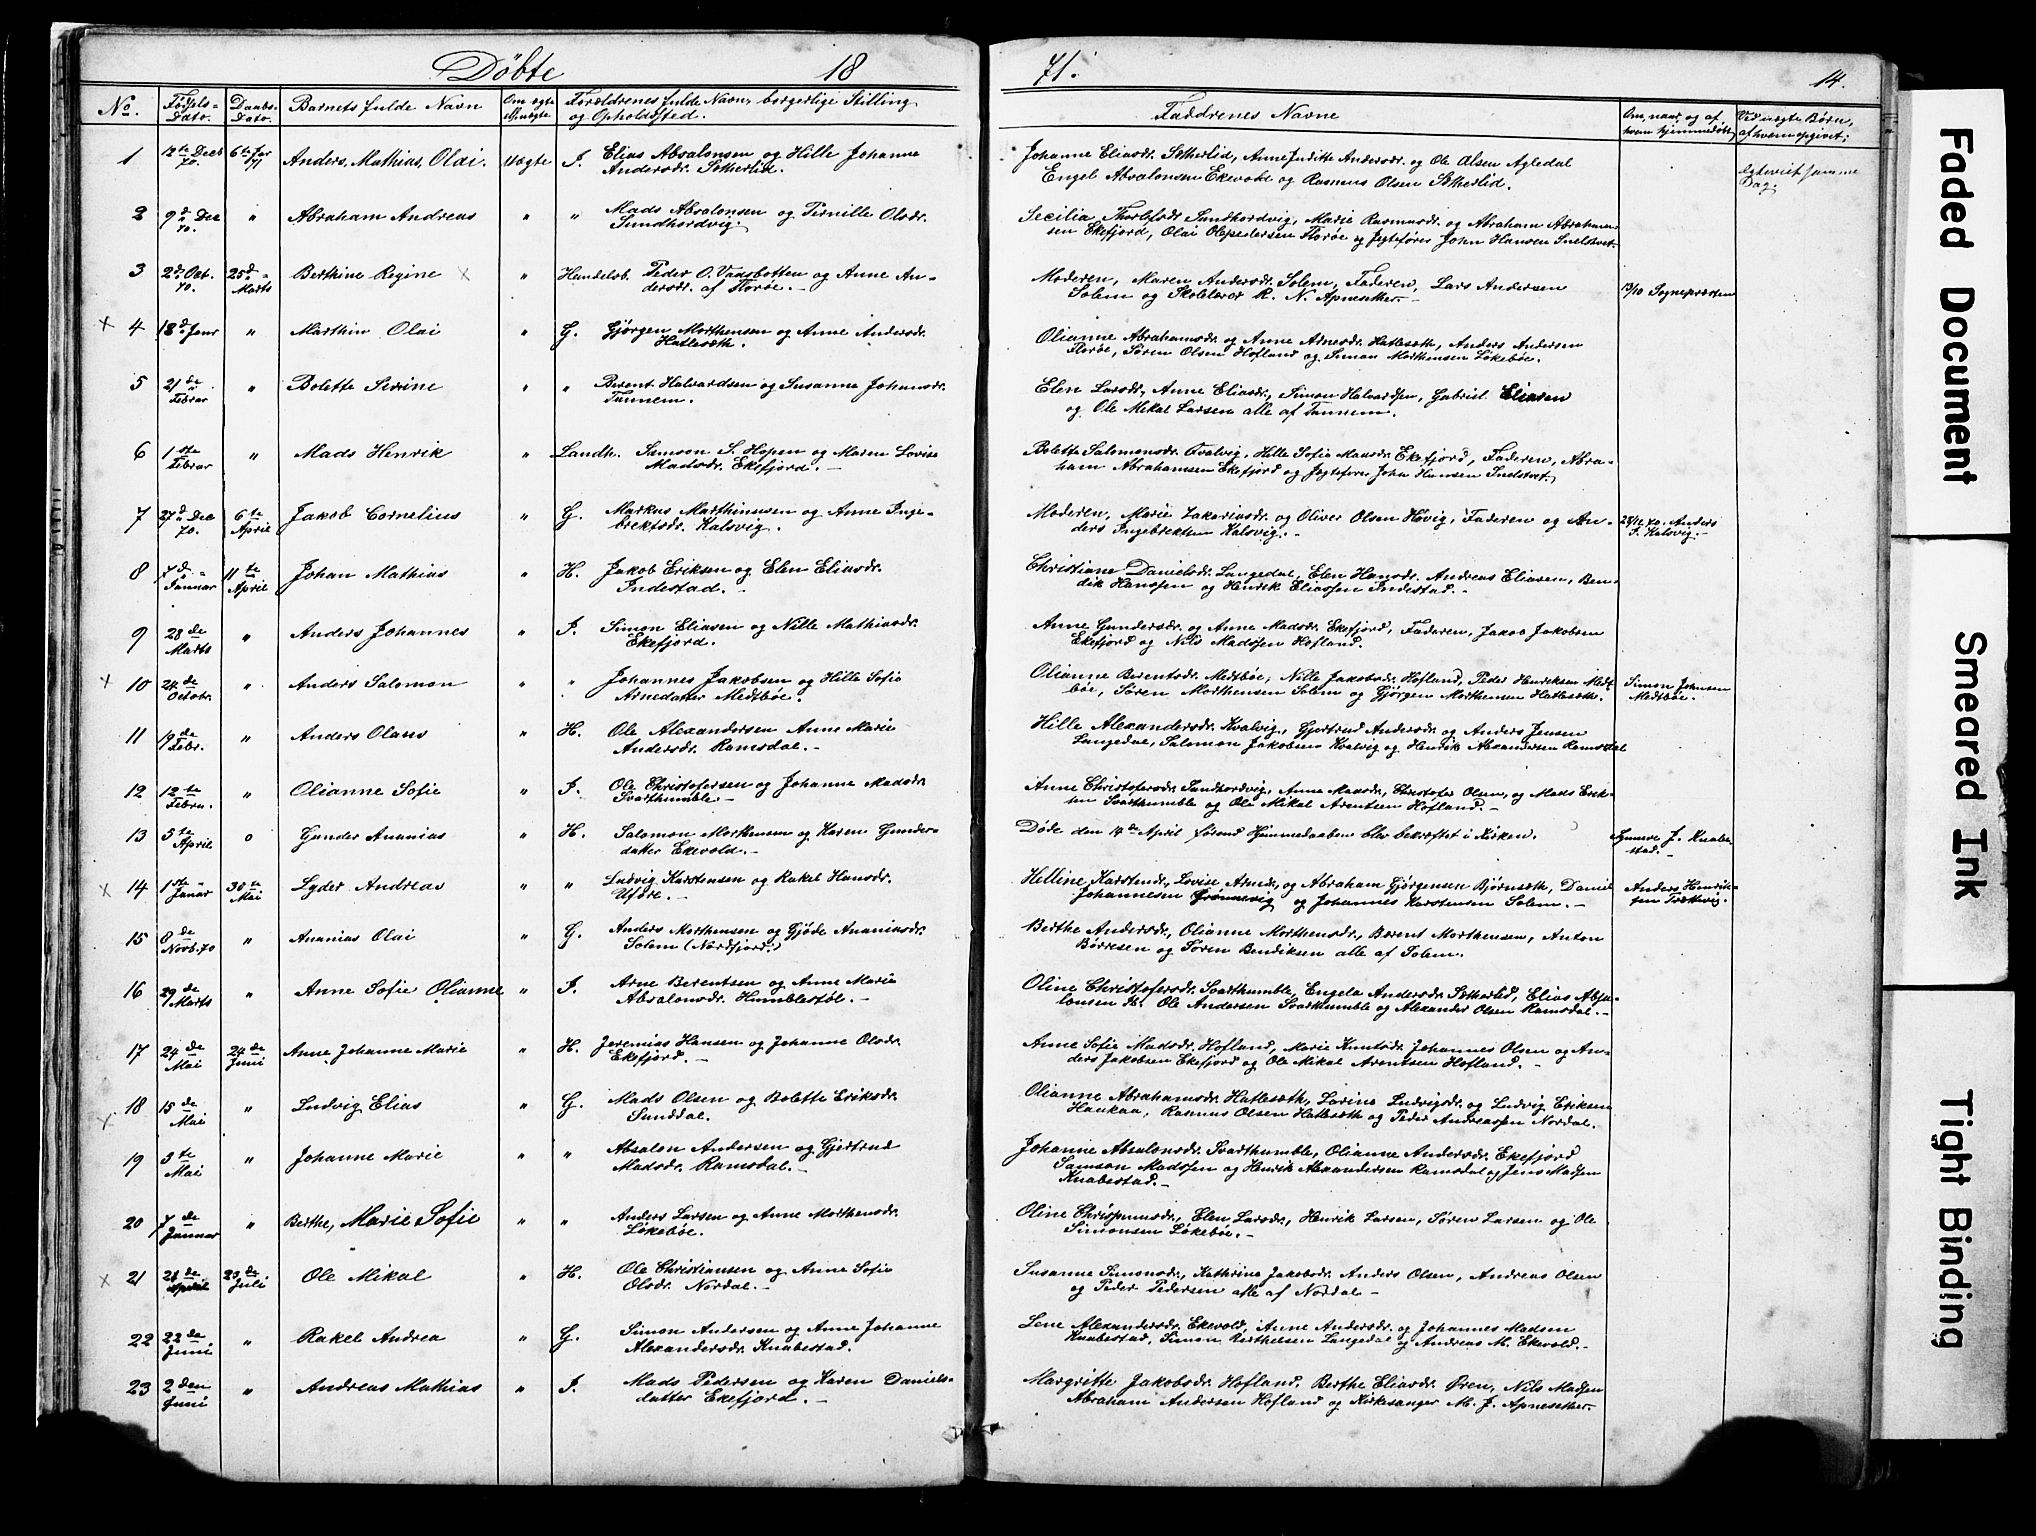 Døbte 18
71.
14.
No. Fødsels-Dato. Daabs-Dato. Barnets fulde Navn Om ægte el. uægte Forældrenes fulde Navn, borgerlige Stilling og Opholdssted.
Faddrenes Navne Om, naar og af hvem hjemmedøbt Ved uægte Børn, af hvem opgivet;
1 12te Decb 70. 6te Jar 71 Anders, Mathias, Olai. Uægte I. Elias Absalonsen og Hille Johanne
Andersdr. Sætherlid.
Johanne Eliasdr. Sætherlid, Anne Juditte Andersdr. og Ole Olsen Agledal
Engel Absalonsen Ekevold og Rasmus Olsen Sætherlid.
samme
Dag.
2 9d Dec 70. " Abraham Andreas " " Mads Absalonsen og Pernille Olsdr.
Sundhordvig.
Secilia Thorlefsdr Sundhordvig, Marie Rasmusdr. og Abraham Abraham-
sen Ekefjord, Olai Olepedersen Florøe og Jegtefører John Hansen
3 2d Oct. 70. 25d Marts Berthine Regine x " Handelsb. Peder O. Vassbotten og Anne An-
dersdr. af Florøe.-
Moderen, Maren Andersdr. Solem, Faderen, Lars Andersen
Solem og Skolelærer R. N. Apneseth.
13/10 Sognepræsten
x 4 18d Janr " Marthin Olai " G. Gjørgen Morthensen og Anne Andersdr.
Hatlesæth.
Olianne Abrahamsdr. og Anne Arnesdr. Hatlesæth, Anders Andersen
Florøe, Søren Olsen Hofland og Simon Morthensen Løkebøe.
5 21de Febrar " Bolette Serine " " Berent Halvardsen og Susanne Johansdr.
Tunnem.
Elen Larsdr., Anne Eliasdr., Simon Halvardsen, Gabriel Eliasen
og Ole Mikal Larsen alle af Tunnem.
6 1ste Febrar " Mads Henrik " Landh. Samson S. Hopen og Maren Lovise
Madsdr. Ekefjord.-
Bolette Salomonsdr. Qvalvig, Hille Sofie Madsdr. Ekefjord, Faderen, Abra-
ham Abrahamsen Ekefjord og Jegtefører John Hansen
7 27d Dec 70. 6te April Jakob Cornelius " G. Markus Marthinusen og Anne Inge-
brektsdr. Kalsvig.-
Moderen, Marie Zakariasdr. og Oliver Olsen Høvig, Faderen og An-
ders Ingebrektsen Kalsvig.-
28/12 70. Anders
I. Kalsvig.-
8 7d Januar 11te April Johan Mathias " H. Jakob Eriksen og Elen Eliasdr.
Indestad.-
Christiane Danielsdr. Langedal, Elen Hansdr. Andreas Eliasen, Ben-
dik Hanssen og Henrik Eliassen Indestad.-
9 28de Marts " Anders Johannes " I. Simon Eliasen og Nille Mathiasdr.
Ekefjord.
Anne Gundersdr. og Anne Madsdr. Ekefjord, Faderen, Jakob Jakobsen
Ekefjord og Nils Madssen Hofland.
x 10 24de Octobr. " Anders Salomon " " Johannes Jakobsen og Hille Sofie
Arnedatter Medtbøe.
Olianne Berentsdr. Medtbøe, Nille Jakobsdr. Hofland, Peder Henriksen Medt-
bøe, Søren Morthensen Solem og Gjørgen Morthensen Hatlesæth.
Simon Johnsen
Medtbøe.
11 19de Febr. " Anders Olaus " H. Ole Alexandersen Anne Marie
Andersdr. Ramsdal.-
Hille Alexandersdr. Kvalvig, Gjertrud Andersdr. og Anders Jensen
Langedal, Salomon Jakobsen Kvalvig og Henrik Alexandersen Ramsdal
12 12te Febru. " Olianne Sofie " I. Ole Christofersen og Johanne Madsdr.
Svarthumble.-
Anne Christofersdr. Sundhordvig, Anne Madsdr., Christofer Olsen, og Mads Erik-
sen Svarthumble og Ole Mikal Arentsen Hofland.-
13 5te April o Gunder Ananias " H. Salomon Morthensen og Karen Gunder-
datter Ekevold.-
Døde den 14de April førend Hjemmedaaben blev bekræftet i Kirken.
J. Knabe-
stad.-
x 14 1ste Januar 30te Mai Lyder Andreas " " Ludvig Karstensen og Rakel Hansdr.
Uføre.-
Helline Karstendr., Lovise Arnedr., og Abraham Gjørgensen Bjørnsæth, Daniel
Johannesen Grønnevig og Johannes Karstensen Solem.-
Anders Henrik-
sen
15 8de Novb. 70 " Ananias Olai " G. Anders Morthensen og Gjøde Ananiasdr.
Solem (Nordfjord.)
Berthe Andersdr., Olianne Morthensdr., Berent Morthensen, Anton
Børresen og Søren Bendiksen alle af Solem.
16 29de Marts " Anne Sofie Olianne " I. Arne Berentsen og Anne Marie
Absalonsdr. Humblestøl.-
Oline Christofersdr. Svarthumble, Engela Andersdr. Sætherlid, Elias Absa-
lonsen Ib. Ole Andersen Svarthumble og Alexander Olsen Ramsdal.-
17 24de Mai 24de Juni Anne Johanne Marie " H. Jeremias Hansen og Johanne Olsdr.
Ekefjord.-
Anne Sofie Madsdr. Hofland, Marie Knutsdr. Johannes Olsen og An-
ders Jakobsen Ekefjord og Ole Mikal Arentsen Hofland.-
x 18 15de Mai " Ludvig Elias " G. Mads Olsen og Bolette Eriksdr.
Sunddal.-
Olianne Abrahamsdr. Hatlesæth, Larine Ludvigsdr. og Ludvig Eriksen
Haukaa, Rasmus Olsen Hatlesæth og Peder Andreassen Nordal.
19 3te Mai " Johanne Marie " " Absalon Andersen og Gjertrud
Madsdr. Ramsdal.-
Johanne Absalonsdr. Svarthumble, Olianne Andersdr. Ekefjord
Samson Madssen og Henrik Alexandersen Ramsdal og Jens Madsen
Knabestad.-
20 7de Januar " Berthe, Marie Sofie " " Anders Larsen og Anne Morthensdr.
Løkebøe.
Oline Chrispinusdr., Elen Larsdr., Henrik Larsen, Søren Larsen og Ole
Simonsen Løkebøe.-
x 21 21de April 23de Juli Ole Mikal " H. Ole Christiansen og Anne Sofie
Olsdr. Nordal.-
Susanne Simonsdr., Kathrine Jakobsdr. Anders Olsen, Andreas Olsen
og Peder Pedersen alle af Nordal-
22 22de Juni " Rakel Andrea " G. Simon Andersen og Anne Johanne
Alexandersdr. Knabestad.
Lene Alexandersdr. Ekevold, Anne Andersdr. og Johannes Madsen
Knabestad, Simon Berthelsen Langedal og Andreas M. Ekevold.-
23 2den Juni " Andreas Mathias " I. Mads Pedersen og Karen Daniels-
datter Ekefjord.-
Margrethe Jakobsdr. Hofland, Berthe Eliasdr. Øren, Nils Madsen
Abraham Andersen Hofland og Kirkesanger M. J. Apneseth.
Faded Document
Smeared Ink
Tight Binding